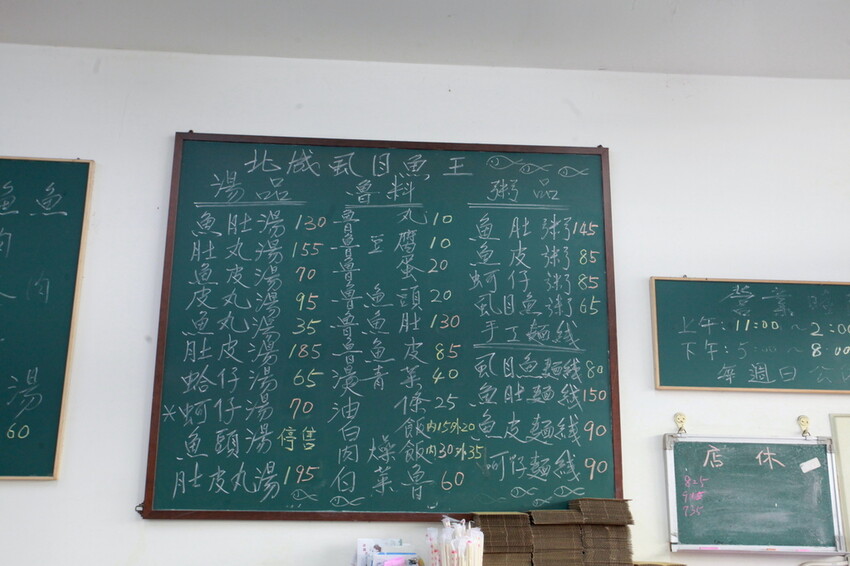 魚
肉
湯
60
北城虱目魚王
湯品
魚肚湯 130
肚丸湯 155
魚皮湯 70
皮丸湯 95
魚丸湯 35
肚皮湯 185
蛤仔湯 65
※蚵仔湯 70
魚頭湯 停售
肚皮丸湯 195
魯料
魯丸 10
魯豆腐 10
魯蛋 20
魯魚頭 20
魯魚肚 130
魯魚皮 85
燙青菜 40
油條 25
白飯 內15外20
肉燥飯 內30外35
白菜魯 60
粥品
魚肚粥 145
魚皮粥 85
蚵仔粥 85
虱目魚粥 65
手工麵線
虱目魚麵線 80
魚肚麵線 150
魚皮麵線 90
蚵仔麵線 90
營業時
上午:11:00~2:00
下午:5:00~8:00
每週日公
店休